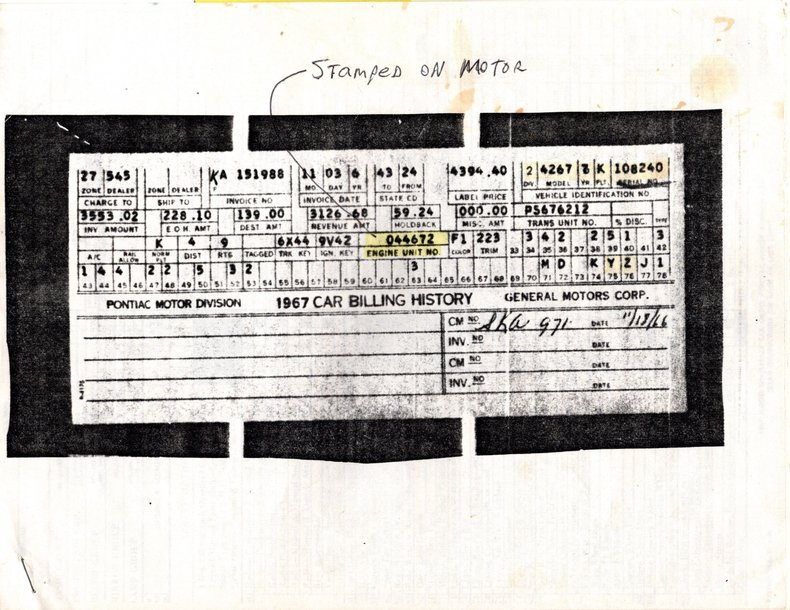 STAMPED ON MOTOR
27 545 KA 151988 11 03 6 43 24 4394.40 2 4267 6 K 108240
ZONE DEALER ZONE DEALER INVOICE NO MO. DAY YR TO FROM LABEL PRICE DIV. MODEL YR PLT. SERIAL NO
CHARGE TO SHIP TO INVOICE DATE STATE CD VEHICLE IDENTIFICATION NO
3553.02 228.10 139.00 3126.68 59.24 000.00 PS676212
INV AMOUNT E.O.H. AMT DEST AMT REVENUE AMT HOLDBACK MISC. AMT TRANS UNIT NO. % DISC. TYPE
K 4 9 6X44 9V42 044672 F1 223 3 4 2 2 5 1 3
A/C RAIL ALLOW NORM PLT DIST RTG TAGGED TRK KEY IGN. KEY ENGINE UNIT NO. COLOR TRIM 33 34 35 36 37 38 39 40 41 42
1 4 4 2 2 5 3 2 3 M D K Y Z J 1
43 44 45 46 47 48 49 50 51 52 53 54 55 56 57 58 59 60 61 62 63 64 65 66 67 68 69 70 71 72 73 74 75 76 77 78
PONTIAC MOTOR DIVISION 1967 CAR BILLING HISTORY GENERAL MOTORS CORP.
CM NO. SKA 971 DATE 11/18/66
INV. NO DATE
CM NO DATE
INV. NO DATE